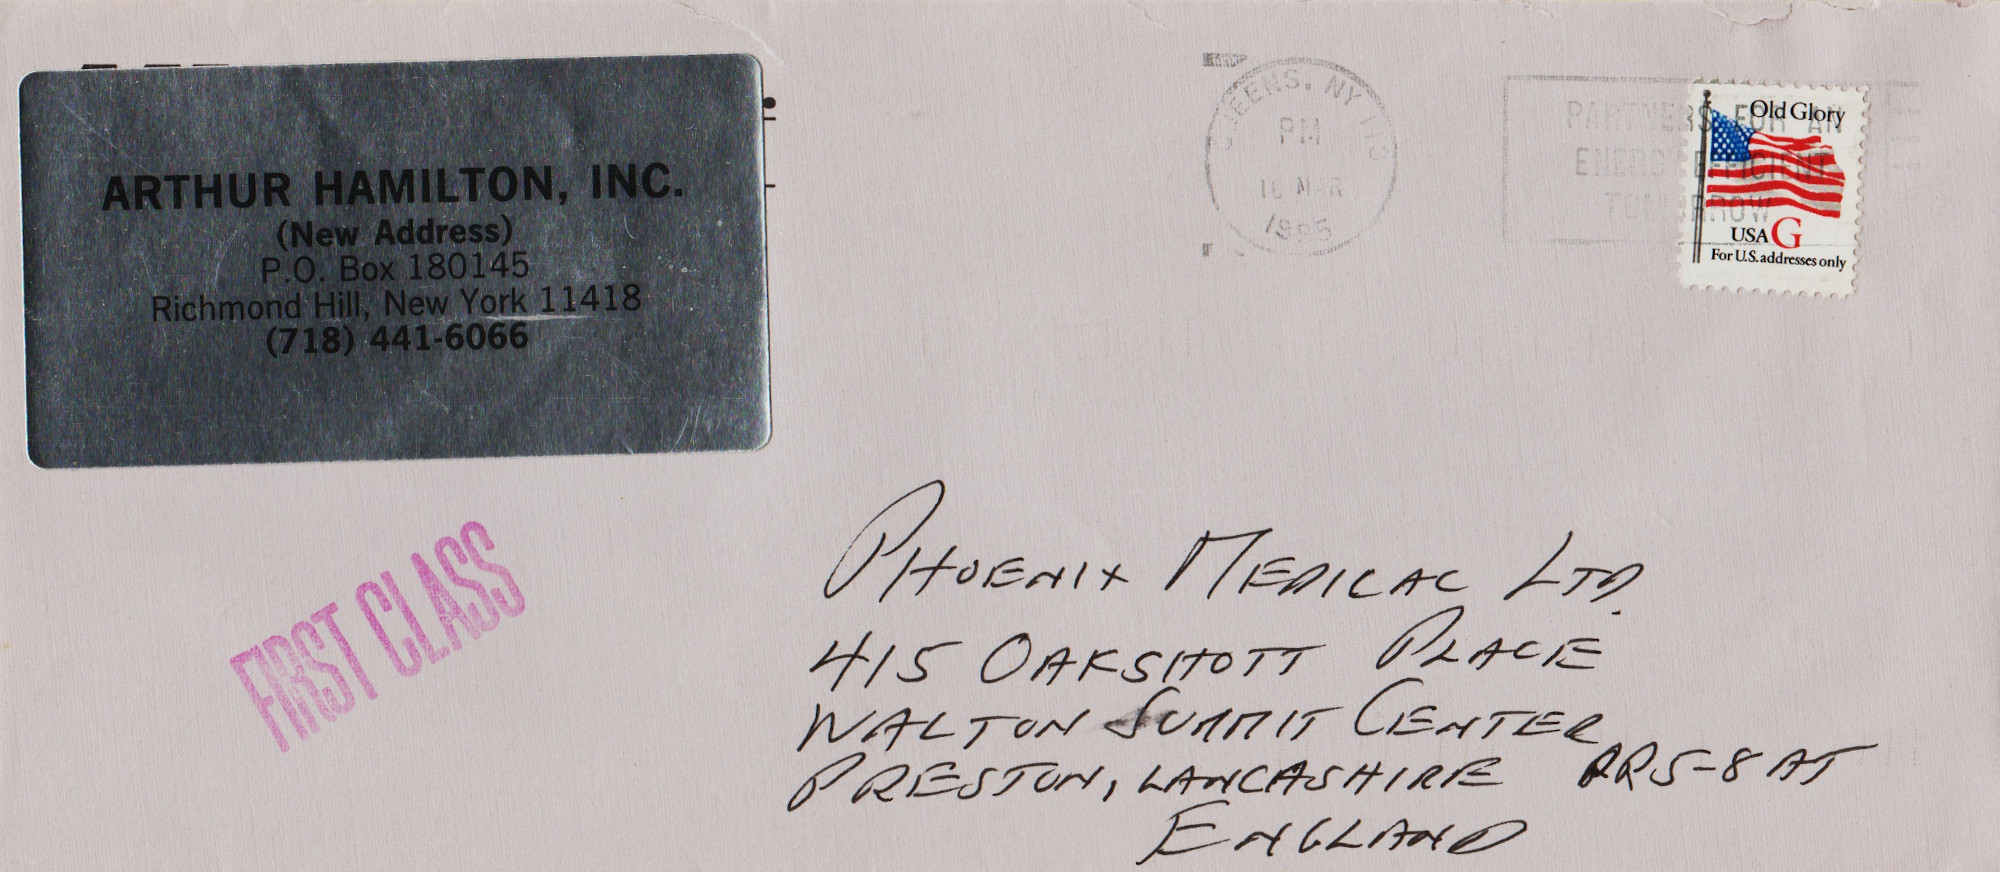 ARTHUR HAMILTON, INC.
(New Address)
P.O. Box 180145
Richmond Hill, New York 11418
(718) 441-6066
QUEENS, NY
PM
16 MAR
1995
PARTNERS FOR AN
ENERGY EFFICIENT
TOMORROW
Old Glory
USA G
For U.S. addresses only
FIRST CLASS
PHOENIX MEDICAL LTD.
415 OAKSHOTT PLACE
WALTON SUMMIT CENTER
PRESTON, LANCASHIRE PR5-8AT
ENGLAND